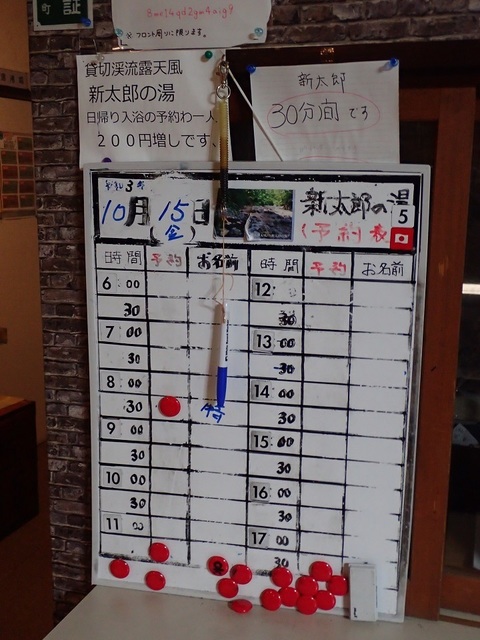 町
証
8me14qd2ym4aig9
※フロント周りに限ります。
貸切渓流露天風
新太郎の湯
日帰り入浴の予約わ一人
200円増しです、
新太郎
30分間です
令和3年
10月15日
(金)
新太郎の湯
(予約表
5
時間 予約 お名前 時間 予約 お名前
6:00 12:
30 30
7:00 13:00
30 30
8:00 14:00
30 30
9:00 15:00
30 30
10:00 16:00
30 30
11:00 17:00
30